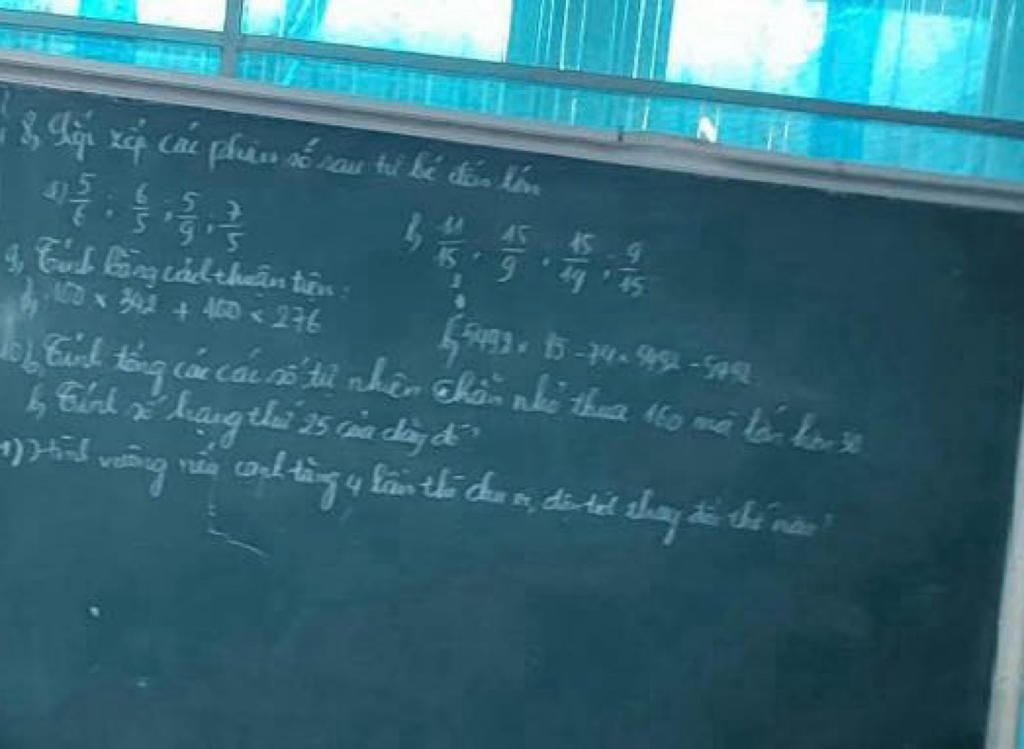 8, Sắp xếp các phân số sau từ bé đến lớn
a) 5/6 ; 6/5 ; 5/9 ; 7/5
b, 11/15 ; 15/9 ; 15/19 ; 9/15
9, Tính bằng cách thuận tiện:
160 x 342 + 160 x 276
b, x 75 - 74 x 5492 - 5492
10, Tính tổng các các số tự nhiên chẵn nhỏ thua 160 mà lớn hơn 30
b, Tính số hạng thứ 25 của dãy đó?
11) Hình vuông nếu cạnh tăng 4 lần thì chu vi, diện tích thay đổi thế nào?